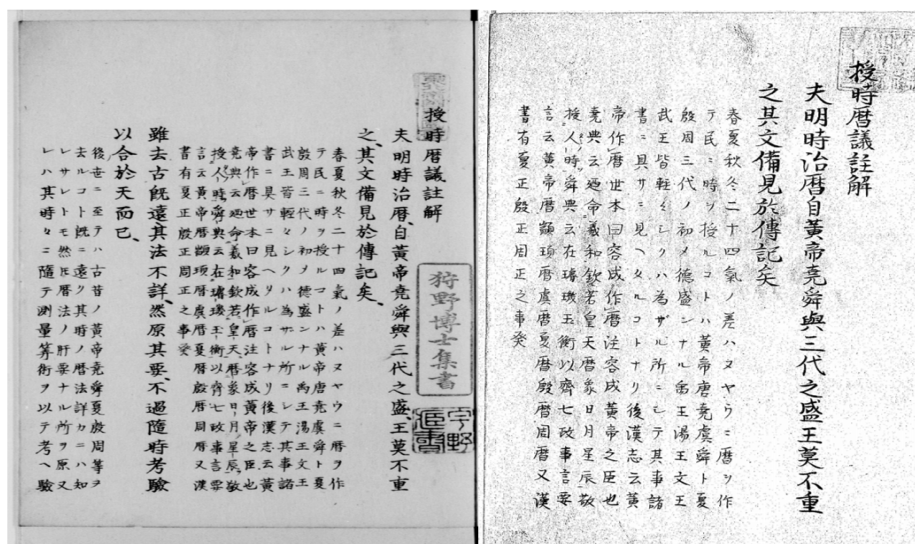 授時暦議註解
夫明時治暦自黃帝堯舜與三代之盛王莫不重
之其文備見於傳記矣
春夏秋冬二十四氣ノ差ハヌヤウニ暦ヲ作
テ民ニ時ヲ授ルコトハ黃帝唐堯虞舜ト夏
殷周三代ノ初メ德盛ンナル禹王湯王文王
武王皆輕々シクハ為ザル所ニシテ其事諸
書ニ具サニ見ヘタルコトナリ後漢志云黃
帝作暦世本曰容成作暦注容成黃帝之臣也
堯典云廼命羲和欽若皇天暦象日月星辰敬
授人時舜典云在璿璣玉衡以齊七政事言要
言云黃帝暦顓頊暦虞暦夏暦殷暦周暦又漢
書有夏正殷正周正之事矣
狩野博士集書
授時暦議註解
夫明時治暦、自黃帝堯舜與三代之盛、王莫不重
之、其文備見於傳記矣、
春夏秋冬二十四氣ノ差ハヌヤウニ暦ヲ作
テ民ニ時ヲ授コトハ黃帝唐堯虞舜ト夏
殷周三代ノ初メ德盛ンナル禹王湯王文王
武王皆輕々シクハ為サル所ニシテ其事諸
書ニ具サニ見ヘタルコトナリ後漢志云黃
帝作暦世本曰容成作暦注容成黃帝之臣也
堯典云廼命羲和欽若皇天暦象日月星辰敬
授人時舜典云在璿璣玉衡以齊七政事言要
言云黃帝暦顓頊暦虞暦夏暦殷暦周暦又漢
書有夏正殷正周正之事矣
雖去古既遠其法不詳、然原其要、不過隨時考驗
以合於天而已、
後世ニ至テハ古昔ノ黃帝堯舜夏殷周等ヲ
去ルコト既ニ遠ク其時ノ暦法詳カニハ知
レサレトモ然暦法ノ肝要ナル所ヲ原又
レハ其時々ニ隨テ測量算術ヲ以テ考ヘ驗